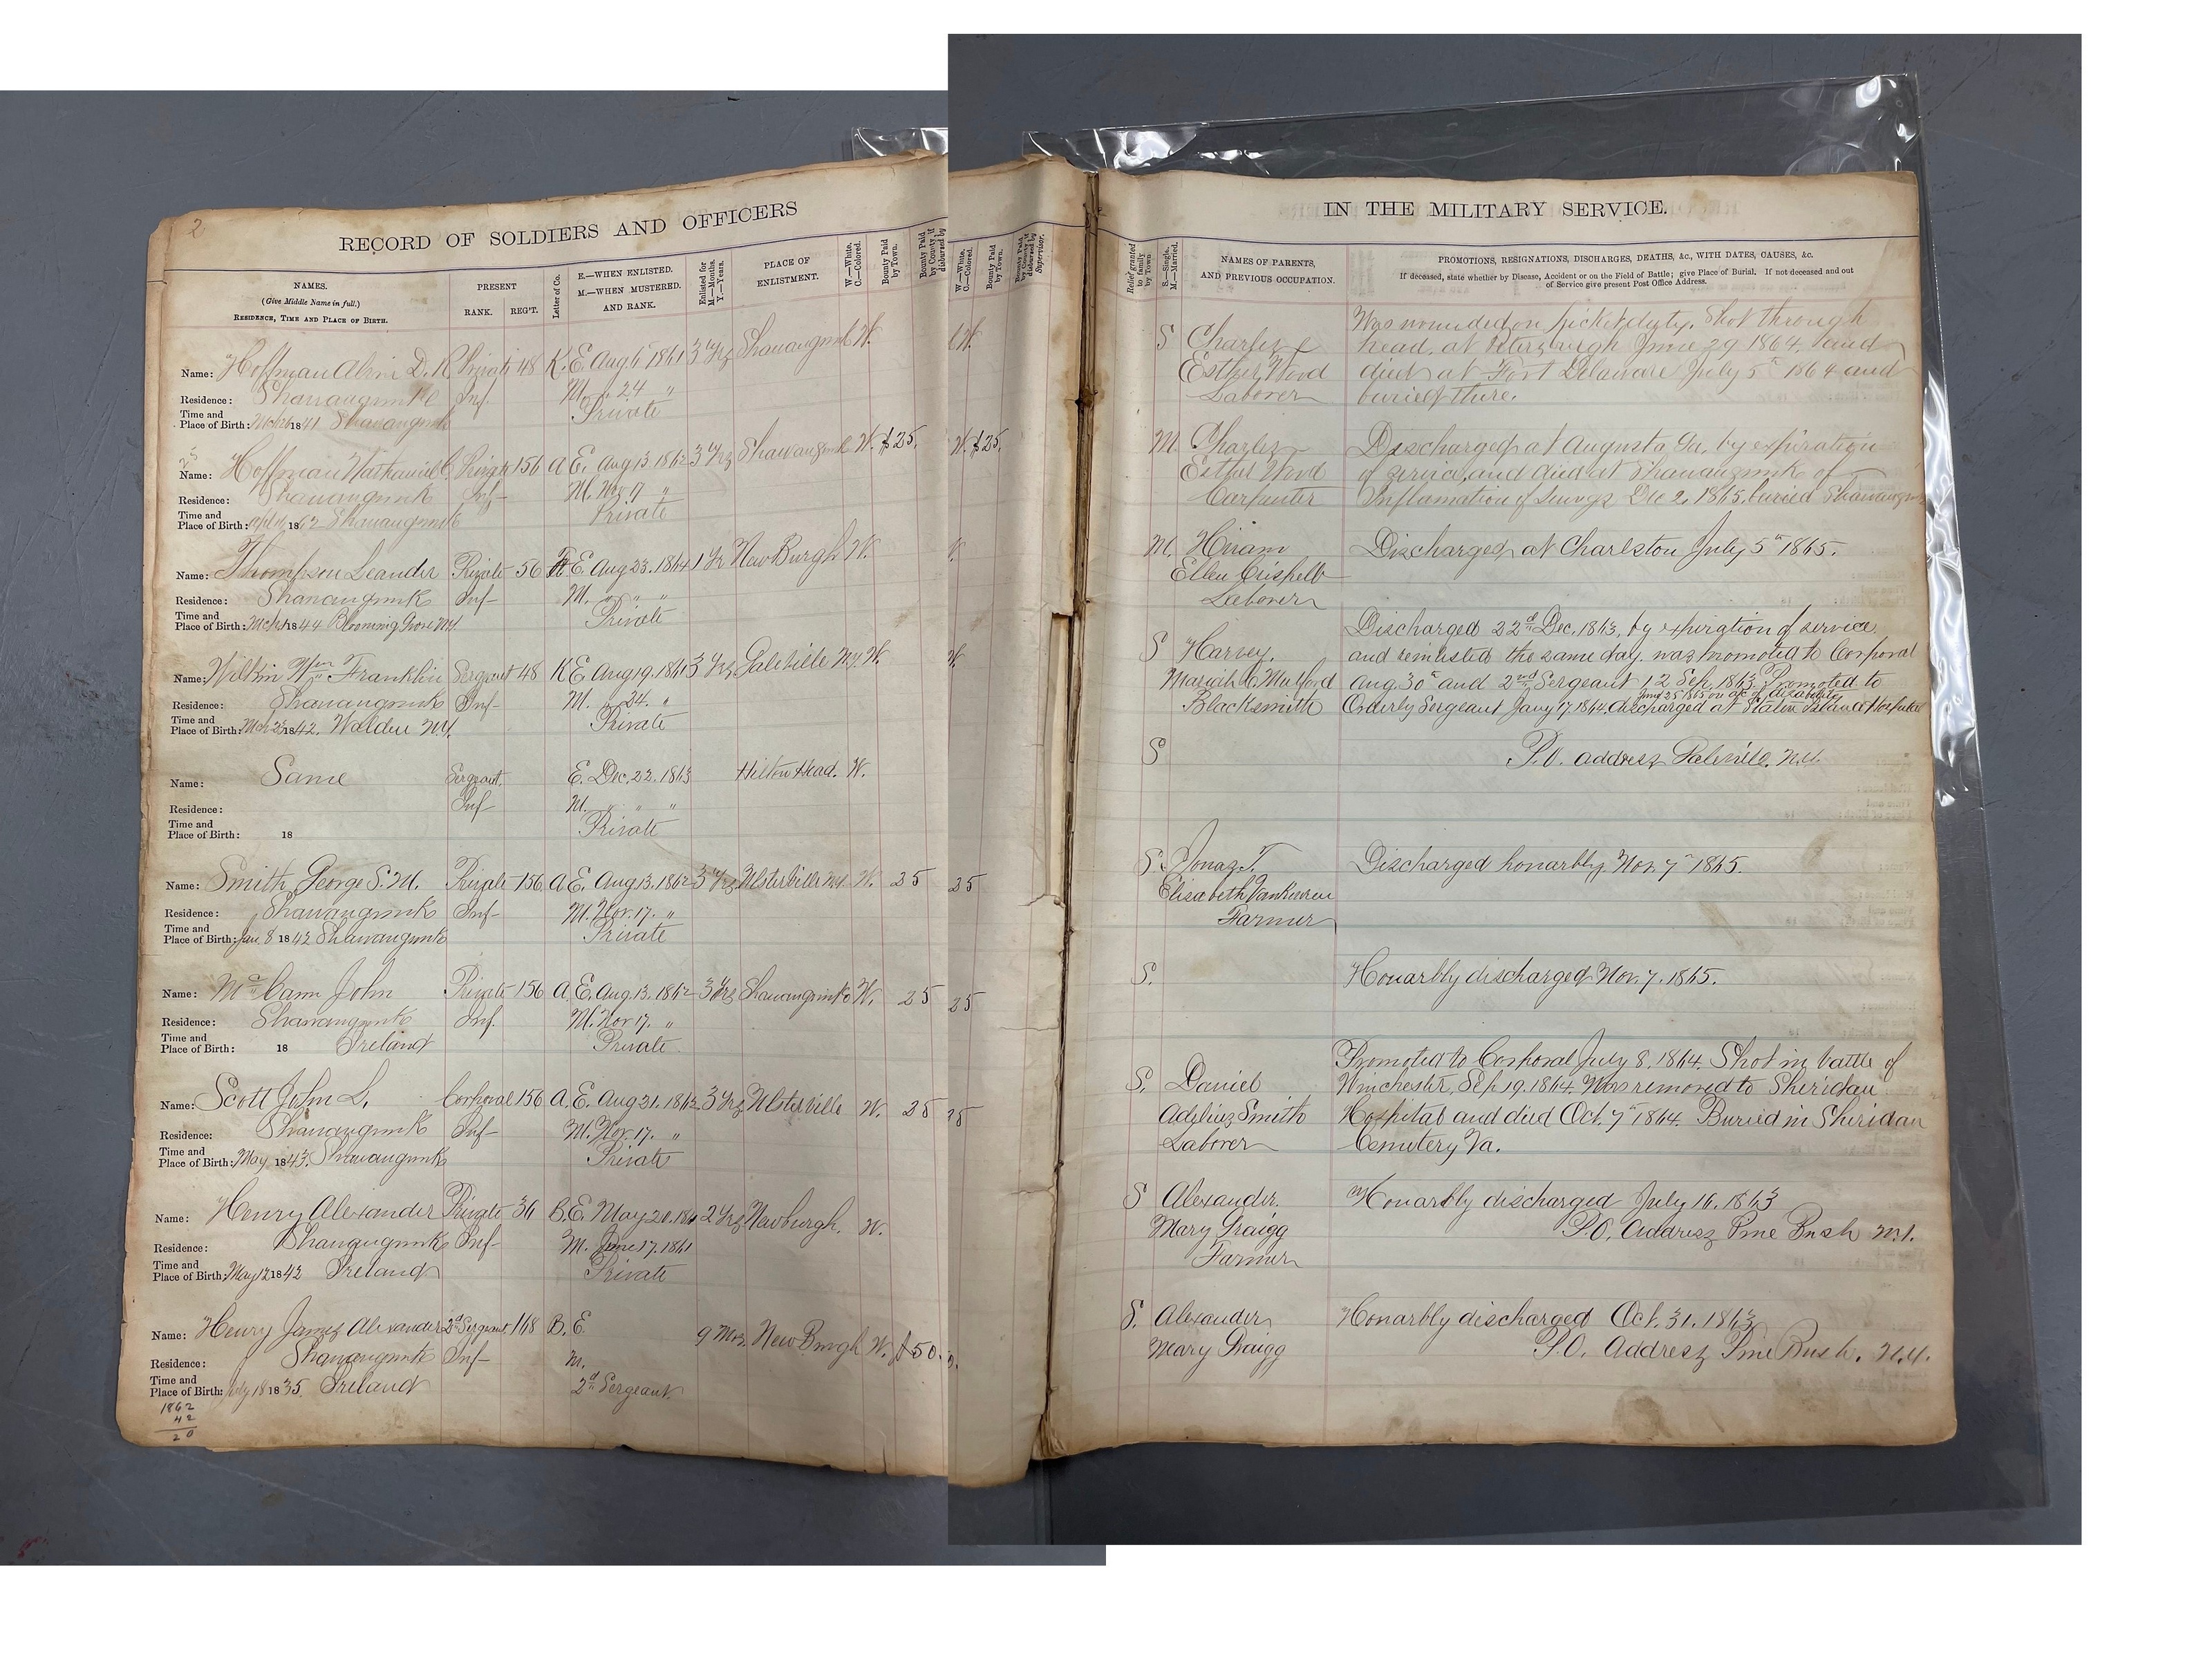 2
RECORD OF SOLDIERS AND OFFICERS
NAMES.
(Give Middle Name in full.)
RESIDENCE, TIME AND PLACE OF BIRTH.
PRESENT
RANK. REG'T.
Letter of Co.
E.—WHEN ENLISTED.
M.—WHEN MUSTERED.
AND RANK.
Enlisted for
M.—Months.
Y.—Years.
PLACE OF
ENLISTMENT.
W.—White.
C.—Colored.
Bounty Paid
by Town.
Bounty Paid
by County, if
disbursed by
Name: Hoffman Alvin D. R. Private 48 K. E. Aug 6 1861 3 Yrs Shawangunk W.
Residence: Shawangunk Inf. M. " 24 "
Time and Private
Place of Birth: 1841 Shawangunk
25
Name: Hoffman Nathaniel C. Private 156 A E. Aug 13. 1862 3 Yrs Shawangunk W. $25.
Residence: Shawangunk Inf- M. Nov 17 "
Time and Private
Place of Birth: 18 Shawangunk
Name: Thompson Leander Private 56 E. Aug 23. 1864 1 Yr NewBurgh W.
Residence: Shawangunk Inf- M. " " "
Time and Private
Place of Birth: 1844 Blooming Grove N.Y
Name: Wilkin Wm Franklin Sergeant 48 K E. Aug 19. 1861 3 Yrs Galeville N.Y. W.
Residence: Shawangunk Inf- M. " 24. "
Time and Private
Place of Birth: Mch 23 1842. Walden N.Y.
Name: Same Sergeant. E. Dec. 22. 1863 Hilton Head. W.
Residence: Inf- M. " " "
Time and Private
Place of Birth: 18
Name: Smith George S. M. Private 156 A E. Aug 13. 1862 3 Yrs Ulsterville N.Y. W. 25
Residence: Shawangunk Inf- M. Nov. 17. "
Time and Private
Place of Birth: Jan 8 1842 Shawangunk
Name: McCann John Private 156 A E. Aug. 13. 1862 3 Yrs Shawangunk W. 25
Residence: Shawangunk Inf. M. Nov 17. "
Time and Private
Place of Birth: 18 Ireland
Name: Scott John L. Corporal 156 A. E. Aug 21. 1862 3 Yrs Ulsterville W. 25
Residence: Shawangunk Inf- M. Nov. 17. "
Time and Private
Place of Birth: May 1843. Shawangunk
Name: Henry Alexander Private 36 B. E. May 20. 1861 2 Yrs Newburgh. W.
Residence: Shawangunk Inf- M. June 17. 1861
Time and Private
Place of Birth: May 12 1842 Ireland
Name: Henry James Alexander 2d Sergeant 168 B. E. 9 Mos. NewBurgh W. $50.
Residence: Shawangunk Inf- M.
Time and 2d Sergeant
Place of Birth: July 18 1835. Ireland
1862
42
20
W.—White.
C.—Colored.
Bounty Paid
by Town.
Bounty Paid
by County, if
disbursed by
Supervisor.
W.
W. $25.
W.
25
25
25
IN THE MILITARY SERVICE.
Relief granted
to family
by Town
S.—Single.
M.—Married.
NAMES OF PARENTS,
AND PREVIOUS OCCUPATION.
PROMOTIONS, RESIGNATIONS, DISCHARGES, DEATHS, &C., WITH DATES, CAUSES, &c.
If deceased, state whether by Disease, Accident or on the Field of Battle; give Place of Burial. If not deceased and out
of Service give present Post Office Address.
Was wounded on picket duty. Shot through
S Charles & head, at Petersburgh June 29 1864. and
Esther Wood died at Fort Delaware July 5th 1864 and
Laborer buried there.
M. Charles Discharged at Augusta Ga. by expiration
Esther Wood of service, and died at Shawangunk of
Carpenter Inflamation of Lungs Dec 2. 1865. buried
M. Hiram Discharged at Charlston July 5th 1865.
Ellen Crispell
Laborer
Discharged 22d Dec. 1863, by expiration of service
S Harvey. and reinlisted the same day. was promoted to Corporal
Mariah C. Mulford Aug. 30th and 2nd Sergeant 12 Sep. 1863. Promoted to
Blacksmith Orderly Sergeant Jany 17. 1864. discharged at Staten Island Hospital
S P.O. address Galeville. N.Y.
S. Jonas T. Discharged honarbly. Nov. 7th 1865.
Elisabeth VanKeuren
Farmer
S. Honarbly discharged Nov. 7. 1865.
Promoted to Corporal July 8. 1864. Shot in battle of
S. Daniel Winchester, Sep 19. 1864. Was removed to Sheridan
Smith Hospital and died Oct. 7th 1864. Buried in Sheridan
Laborer Cemetery Va.
S Alexander. Honarbly discharged July 16. 1863
Mary Graigg P.O. Address Pine Bush N.Y.
Farmer
S. Alexander Honarbly discharged Oct. 31. 1863
Mary Graigg P.O. Address Pine Bush. N.Y.